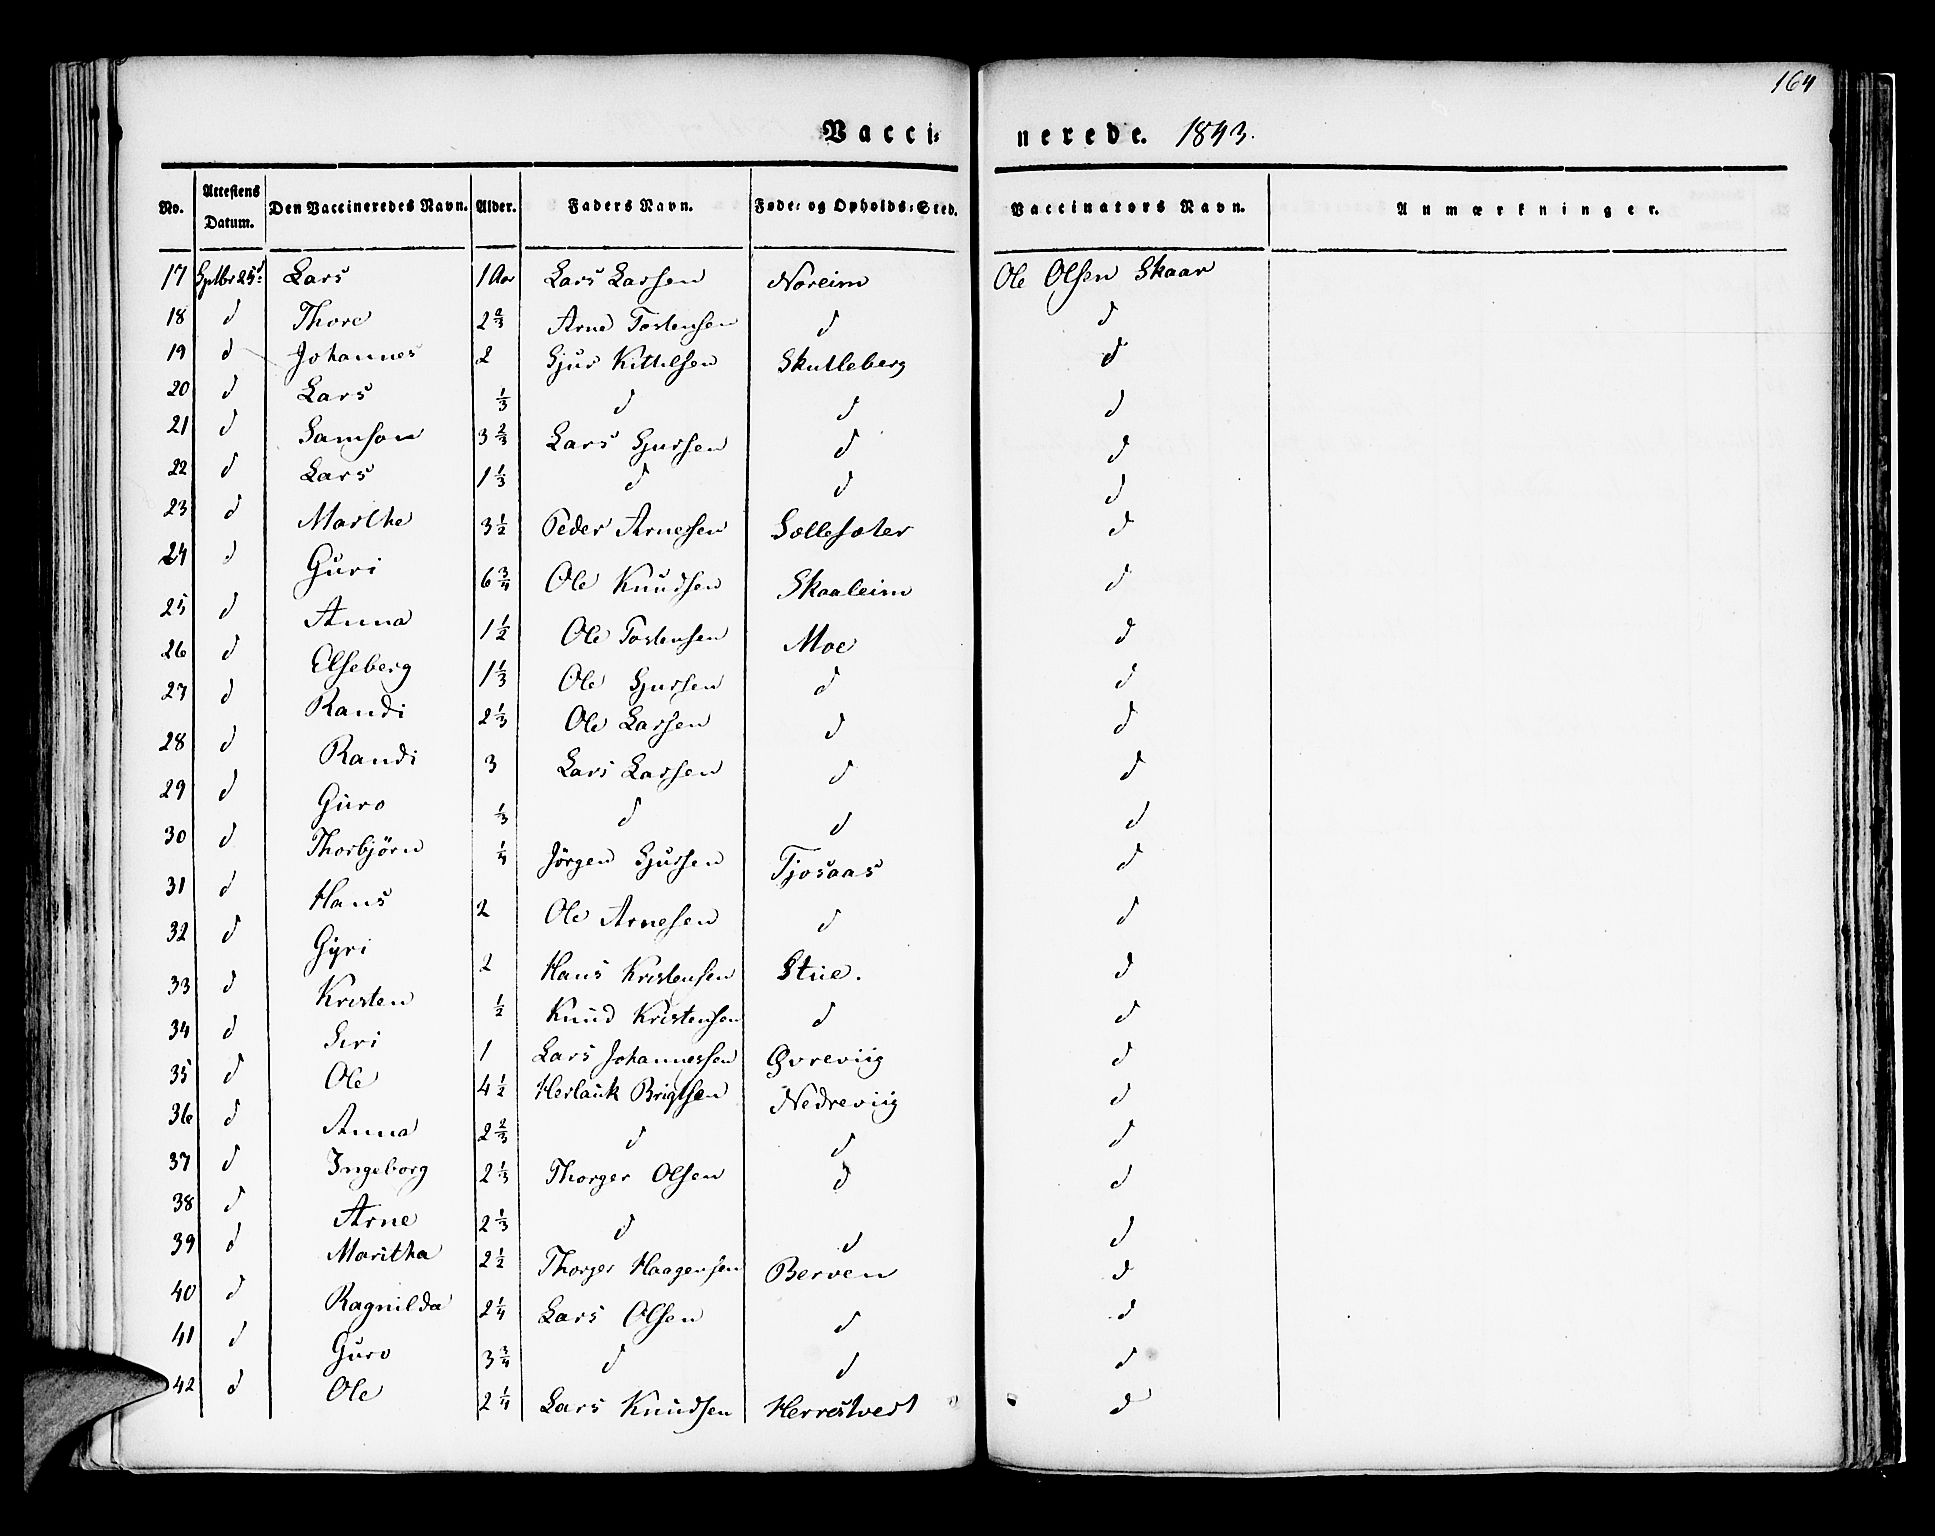 164
Vacci- nerede. 1843.
No. Attestens Datum. Den Vaccineredes Navn. Alder. Faders Navn. Føde- og Opholds-Sted. Vaccinators Navn. Anmærkninger.
17 Sptbr 25d Lars 1 Aar Lars Larsen Noreim Ole Olsen Skaar
18 d Thore 2 2/3 Arne Tostensen d d
19 d Johannes 2 Sjur Kittilsen Skutleberg d
20 d Lars 1/3 d d d
21 d Samson 3 2/3 Lars Sjursen d d
22 d Lars 1 1/3 d d d
23 d Marthe 3 1/2 Peder Arnesen Sællesæter d
24 d Guri 6 3/4 Ole Knudsen Skaaleim d
25 d Anna 1 1/2 Ole Tostensen Moe d
26 d Elseberg 1 1/3 Ole Sjursen d d
27 d Randi 2 1/3 Ole Larsen d d
28 d Randi 3 Lars Larsen d d
29 d Guro 1/3 d d d
30 d Thorbjörn 1/4 Jörgen Sjursen Tjosaas d
31 d Hans 2 Ole Arnesen d d
32 d Gyri 2 Hans Kristensen Stue. d
33 d Kristen 1/2 Knud Kristensen d d
34 d Siri 1 Lars Johannessen Øvreviig d
35 d Ole 4 1/2 Herlauk Brigtsen Nedreviig d
36 d Anna 2 2/3 d d d
37 d Ingeborg 2 1/3 Thorger Olsen d d
38 d Arne 2 1/3 d d d
39 d Maritha 2 1/2 Thorger Haagensen Berven d
40 d Ragnilda 2 1/4 Lars Olsen d d
41 d Guro 3 3/4 d d d
42 d Ole 2 1/4 Lars Knudsen Herrestvedt d